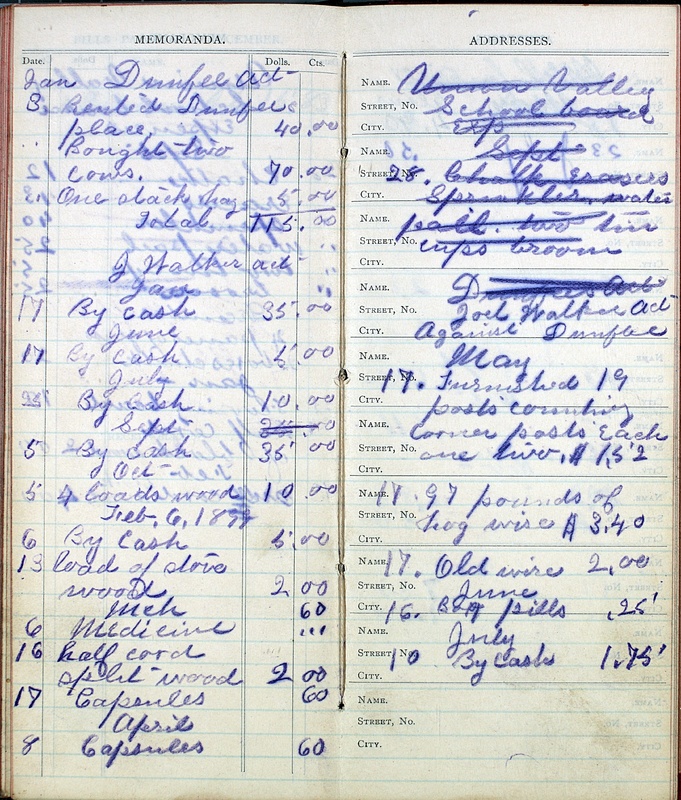 MEMORANDA.
Date. Dolls. Cts.
Jan Dunfee act
3. Rented Dunfee
place. 40.00
Bought two
cows. 70.00
". One stack hay 5.00
Total 115.00
J Walker act
Jan
17 By Cash 35.00
June
17 By Cash 5.00
July
By Cash 10.00
Sept
5 By Cash 35.00
Oct
5 4 loads wood 10.00
Feb. 6, 1899
6 By Cash 5.00
13 load of stove
wood 2 00
Mch 60
6 Medicine "
16 half cord
split wood 2 00
17 Capsules 60
April
8 Capsules 60
ADDRESSES.
NAME. Union Valley
STREET, No. School board
CITY. Exp
NAME. Sept
STREET, No. 28. Chalk Erasers
CITY. Sprinkler, water
NAME. pall. two tin
STREET, No. cups broom
CITY.
NAME. Dunfees Act
STREET, No. Joel Walker act
CITY. Against Dunfee
NAME. May
STREET, No. 17. Furnished 19
CITY. posts counting
NAME. corner posts each
STREET, No. one two, $ 1,52
CITY.
NAME. 17. 97 pounds of
STREET, No. hog wire $ 3.40
CITY.
NAME. 17. Old wire 2,00
STREET, No. June
CITY. 16. pills ,25
NAME. July
STREET, No. 10 By Cash 1.75
CITY.
NAME.
STREET, No.
CITY.